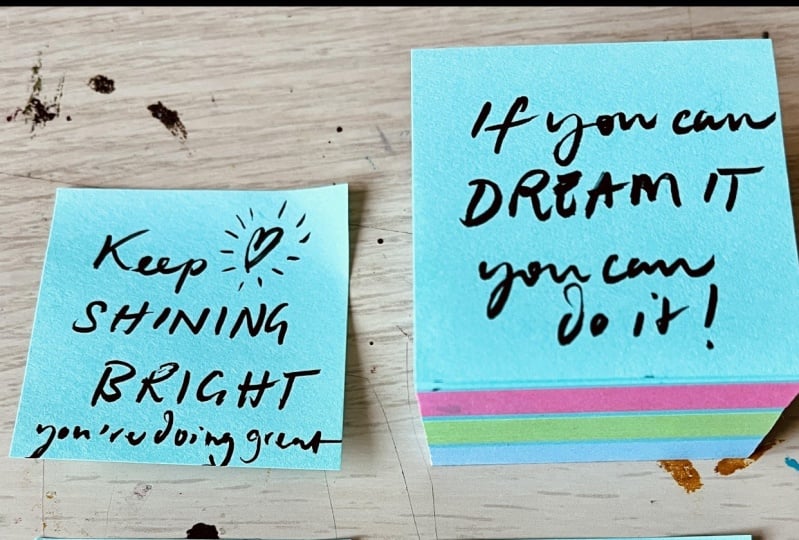 Keep
SHINING
BRIGHT
you're doing great
If you can
DREAM IT
you can
do it!